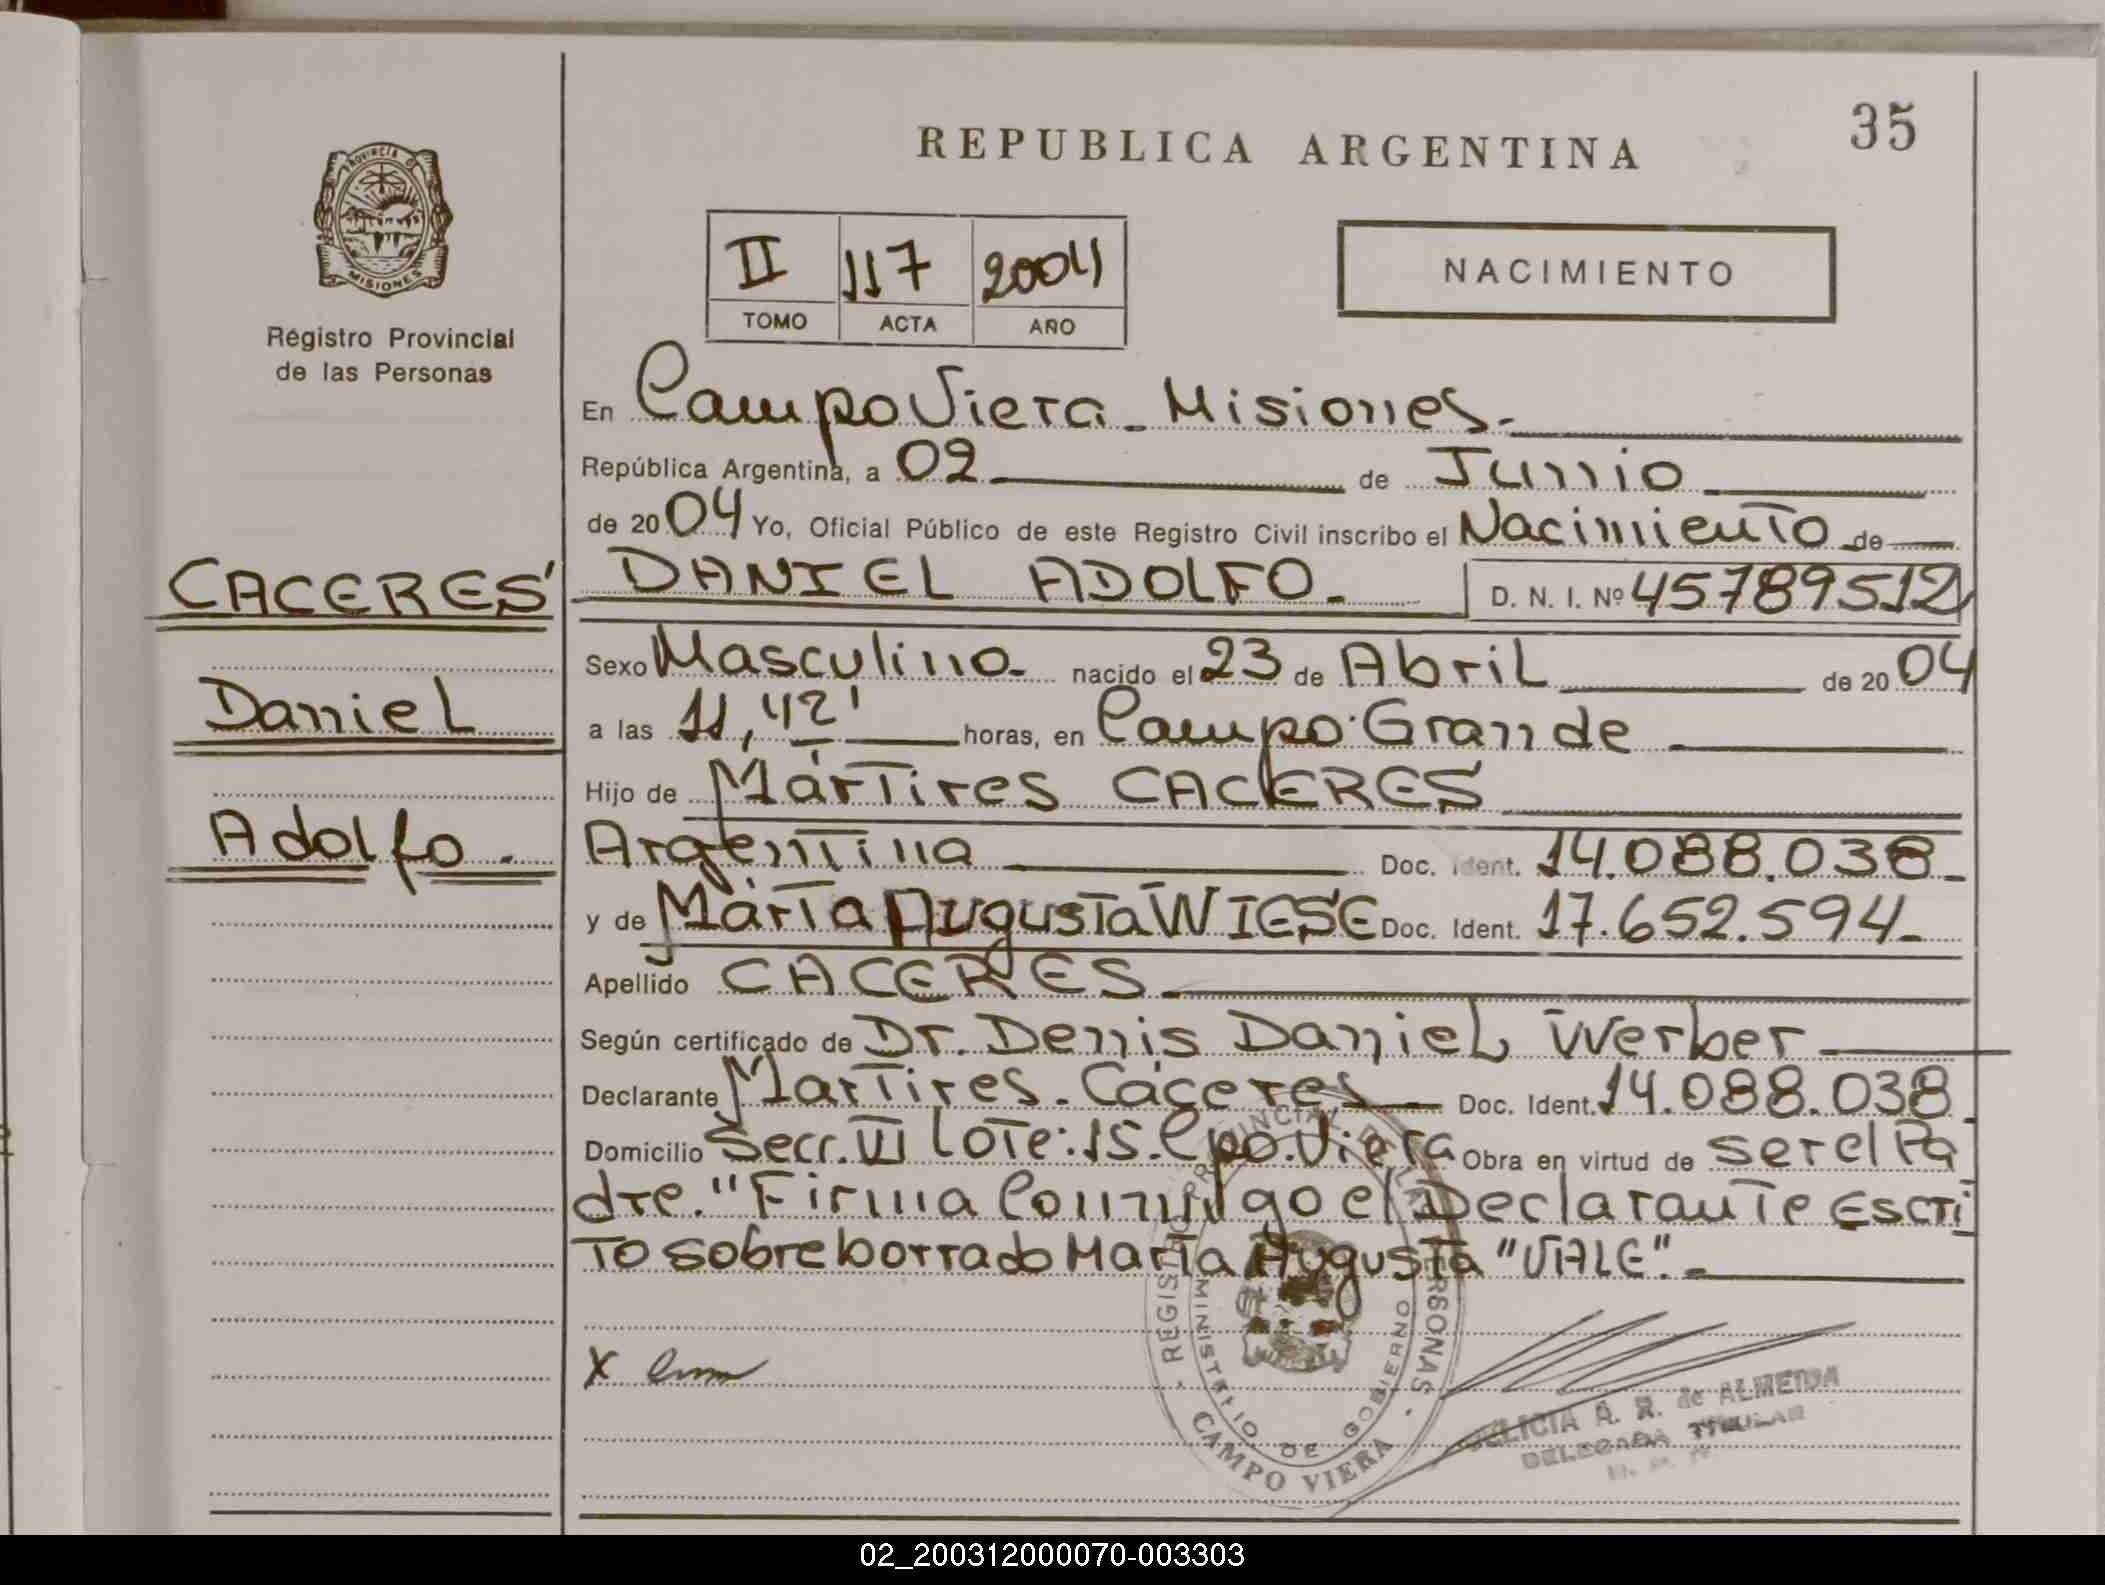 REPUBLICA ARGENTINA
35
PROVINCIA D
MISIONES
Registro Provincial
de las Personas
II 117 2004
TOMO ACTA AÑO
NACIMIENTO
En Campo Viera - Misiones.-
República Argentina, a 02 de Junio
de 2004 Yo, Oficial Público de este Registro Civil inscribo el Nacimiento de
CACERES
DANIEL ADOLFO.- D. N. I. Nº 45789512
Sexo Masculino- nacido el 23 de Abril de 2004
Daniel
a las 11,42' horas, en Campo Grande
Hijo de Mártires CACERES
Adolfo.
Argentina Doc. Ident. 14.088.038-
y de Márta Augusta WIESE Doc. Ident. 17.652.594-
Apellido CACERES-
Según certificado de Dr. Denis Daniel Werber
Declarante Martires Cáceres Doc. Ident. 14.088.038
Domicilio Secc. VI Lote: 15. Cpo. Viera Obra en virtud de ser el Pa
dre. "Firma Conmigo el Declarante Escri
to sobre borrado Marta Augusta "VALE".-
X
REGISTRO PROVINCIAL DE LAS PERSONAS
MINISTERIO DE GOBIERNO
CAMPO VIERA
A. R. de ALMEIDA
DELEGADA TITULAR
02_200312000070-003303